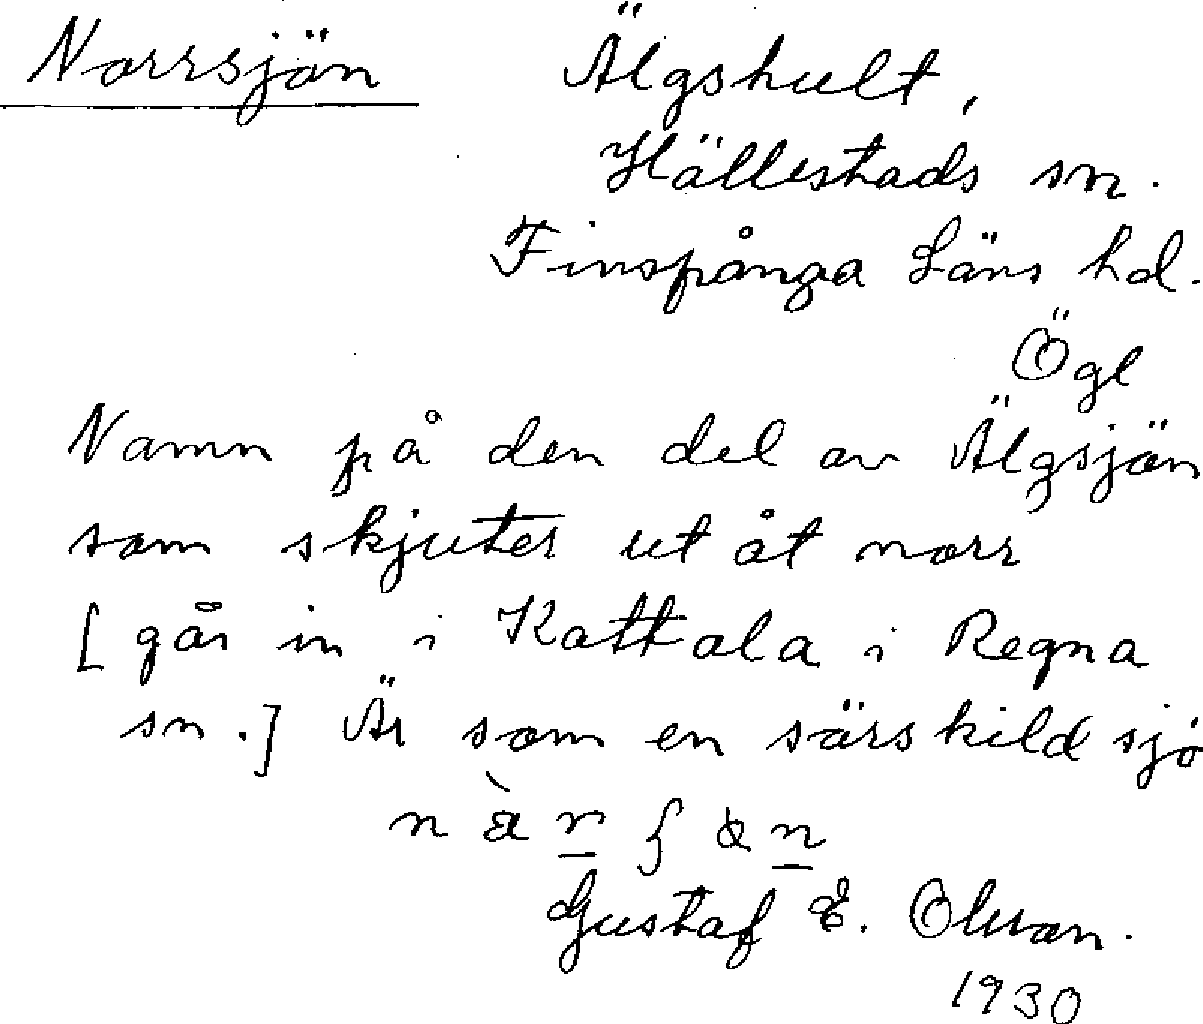 Norrsjön Älgshult,
Hällestads sn.
Finspånga Läns hd.
Ögl
Namn på den del av Älgsjön
som skjuter ut åt norr
[går in i Kattala i Regna
sn.] Är som en särskild sjö
Gustaf E. Olsson.
1930